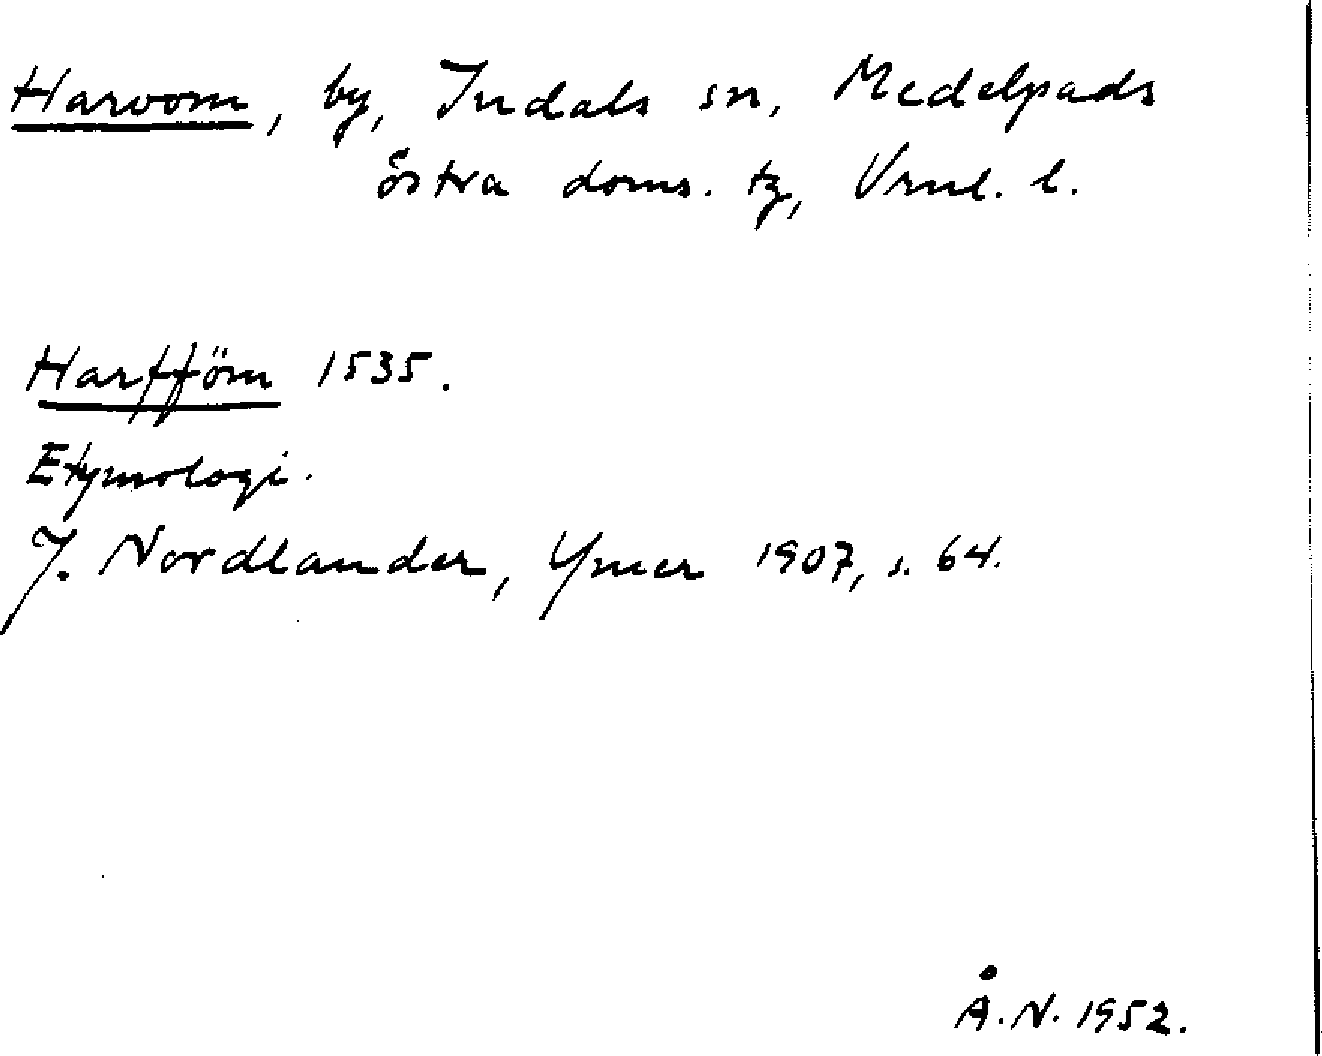 Harvom, by, Indals sn, Medelpads
östra doms. tg, Vrnl. l.
Harfföm 1535.
Etymologi.
J. Nordlander, Ymer 1907, s. 64.
Å.N. 1952.